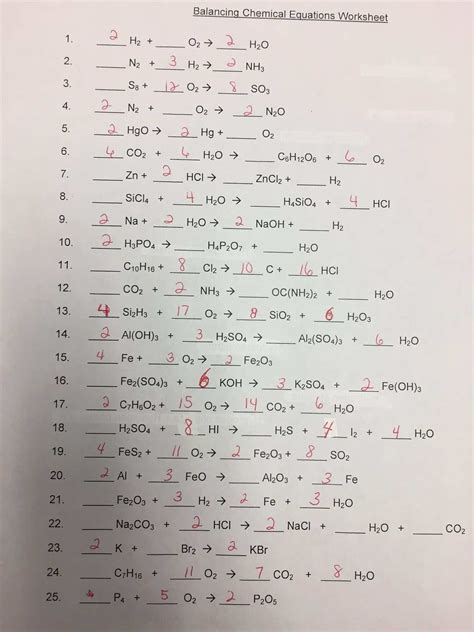 Balancing Chemical Equations Worksheet
1. 2 H₂ + ____ O₂ → 2 H₂O
2. ____ N₂ + 3 H₂ → 2 NH₃
3. ____ S₈ + 12 O₂ → 8 SO₃
4. 2 N₂ + ____ O₂ → 2 N₂O
5. 2 HgO → 2 Hg + ____ O₂
6. 6 CO₂ + 6 H₂O → ____ C₆H₁₂O₆ + 6 O₂
7. ____ Zn + 2 HCl → ____ ZnCl₂ + ____ H₂
8. ____ SiCl₄ + 4 H₂O → ____ H₄SiO₄ + 4 HCl
9. 2 Na + 2 H₂O → 2 NaOH + ____ H₂
10. 2 H₃PO₄ → ____ H₄P₂O₇ + ____ H₂O
11. ____ C₁₀H₁₆ + 8 Cl₂ → 10 C + 16 HCl
12. ____ CO₂ + 2 NH₃ → ____ OC(NH₂)₂ + ____ H₂O
13. 4 Si₂H₃ + 17 O₂ → 8 SiO₂ + 6 H₂O₃
14. 2 Al(OH)₃ + 3 H₂SO₄ → ____ Al₂(SO₄)₃ + 6 H₂O
15. 4 Fe + 3 O₂ → 2 Fe₂O₃
16. ____ Fe₂(SO₄)₃ + 6 KOH → 3 K₂SO₄ + 2 Fe(OH)₃
17. 2 C₇H₆O₂ + 15 O₂ → 14 CO₂ + 6 H₂O
18. ____ H₂SO₄ + 8 HI → ____ H₂S + 4 I₂ + 4 H₂O
19. 4 FeS₂ + 11 O₂ → 2 Fe₂O₃ + 8 SO₂
20. 2 Al + 3 FeO → ____ Al₂O₃ + 3 Fe
21. ____ Fe₂O₃ + 3 H₂ → 2 Fe + 3 H₂O
22. ____ Na₂CO₃ + 2 HCl → 2 NaCl + ____ H₂O + ____ CO₂
23. 2 K + ____ Br₂ → 2 KBr
24. ____ C₇H₁₆ + 11 O₂ → 7 CO₂ + 8 H₂O
25. ____ P₄ + 5 O₂ → 2 P₂O₅